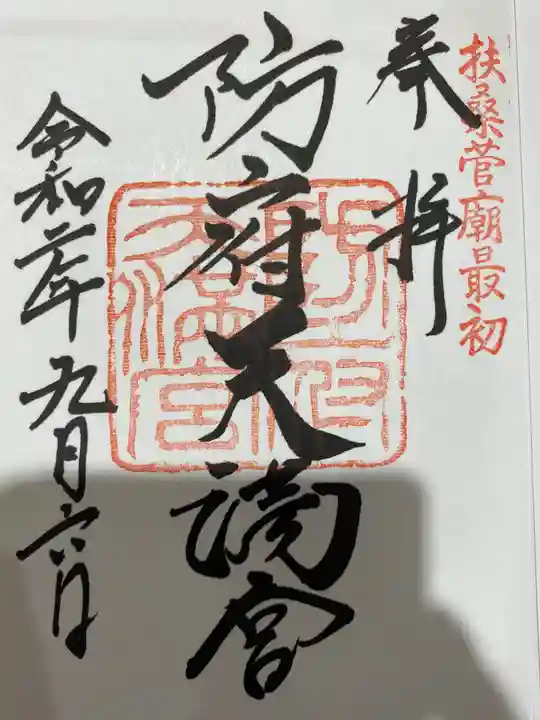 扶桑菅廟最初
奉拝
防府天満宮
令和二年九月六日
防府天満宮